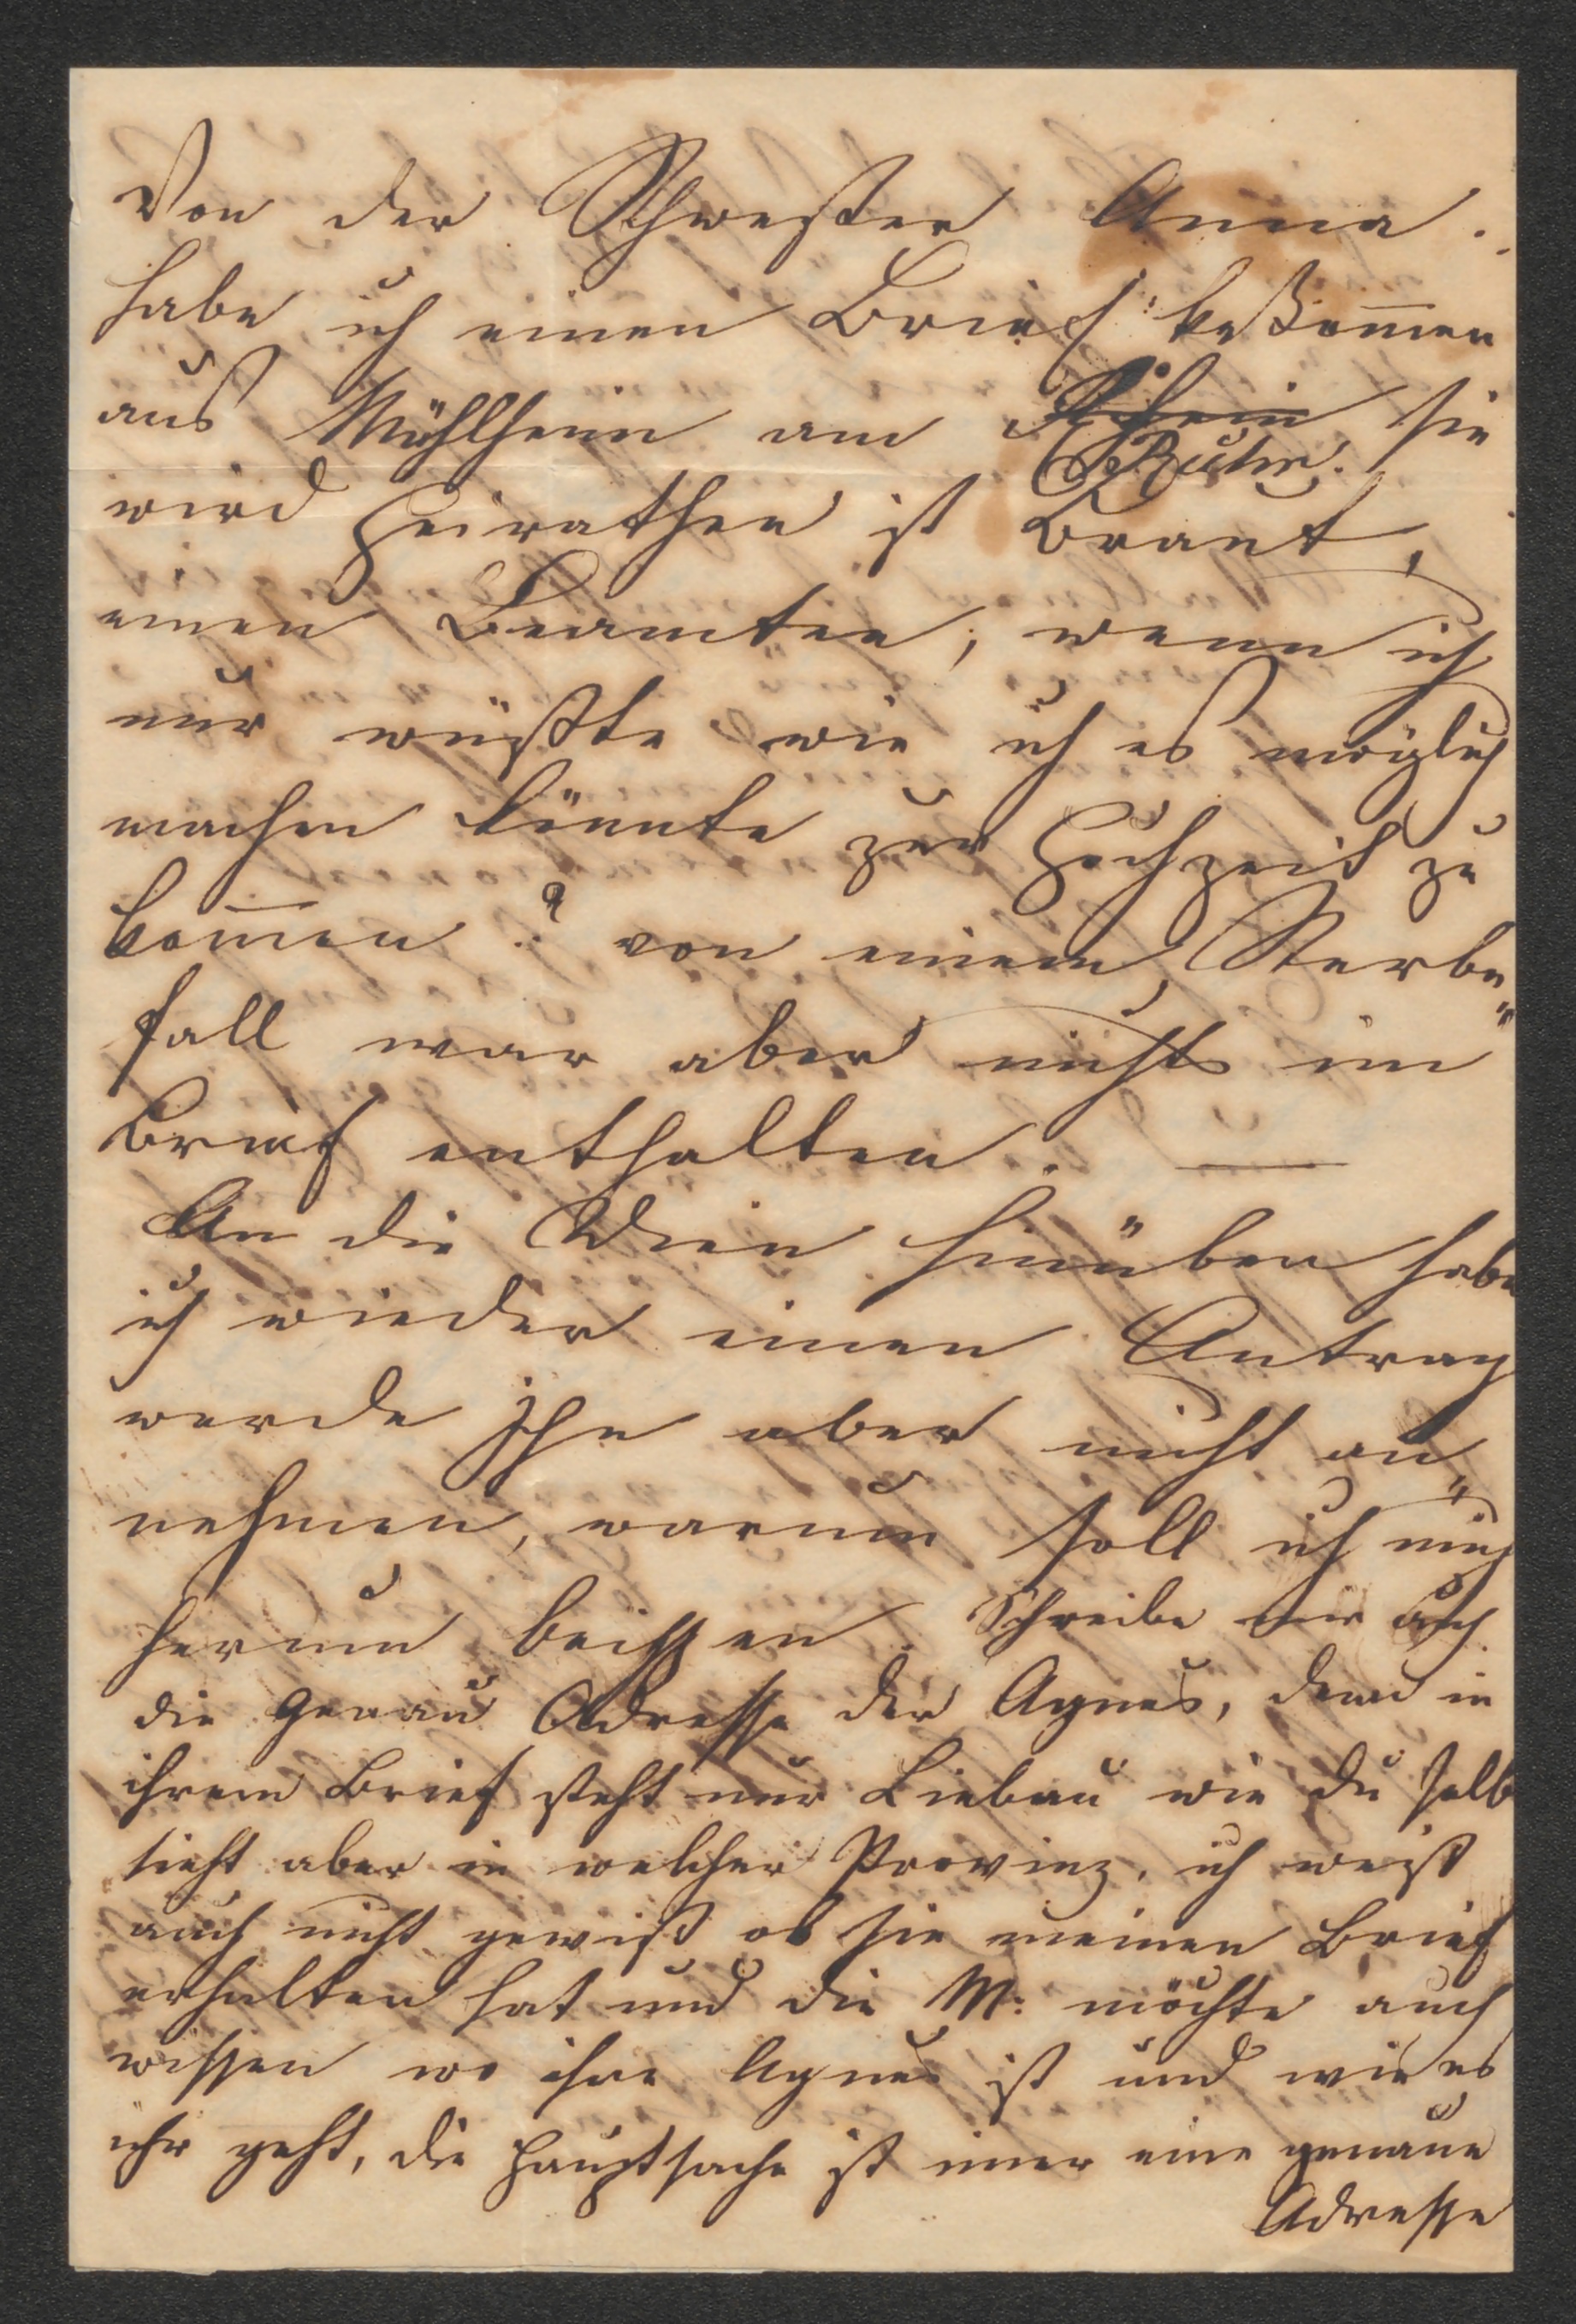 Von der Schwester Anna.
habe ich einen Brief bekom̄en
aus Mühlheim am Rhein sie
Ruhr.
wird heirathen ist Braut,
einen Beamten, wenn ich
nur wüßte wie ich es möglich
machen könnte zur Hochzeit zu
kom̄en? von einem Sterbe„
fall war aber nichts im
Brief enthalten. —
An die Wien hinüber habe
ich wieder einen Antrag
werde Ihn aber nicht an„
nehmen, warum soll ich mich
herum beissen. Schreibe mir auch
die genau Adresse der Agnes, denn in
ihrem Brief steht nur Liebau wie du selb
sieht aber in welcher Provinz, ich weiß
auch nicht gewiß ob sie meinen Brief
erhalten hat und die M: möchte auch
wissen wo ihre Agnes ist und wie es
ihr geht, die Hauptsache ist imer eine genaue
Adresse